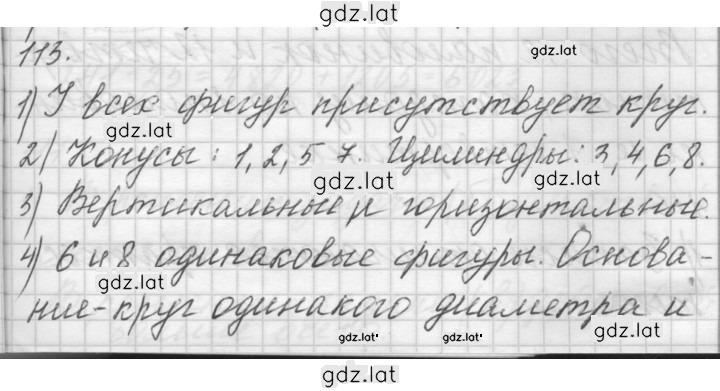 gdz.lat
113.
gdz.lat
1) У всех фигур присутствует круг.
gdz.lat
2) Конусы: 1, 2, 5 7. Цилиндры: 3, 4, 6, 8.
gdz.lat gdz.lat
3) Вертикальные и горизонтальные.
4) 6 и 8 одинаковые фигуры. Основа-
gdz.lat
ние-круг одинакого диаметра и
gdz.lat gdz.lat gdz.lat
gdz.lat